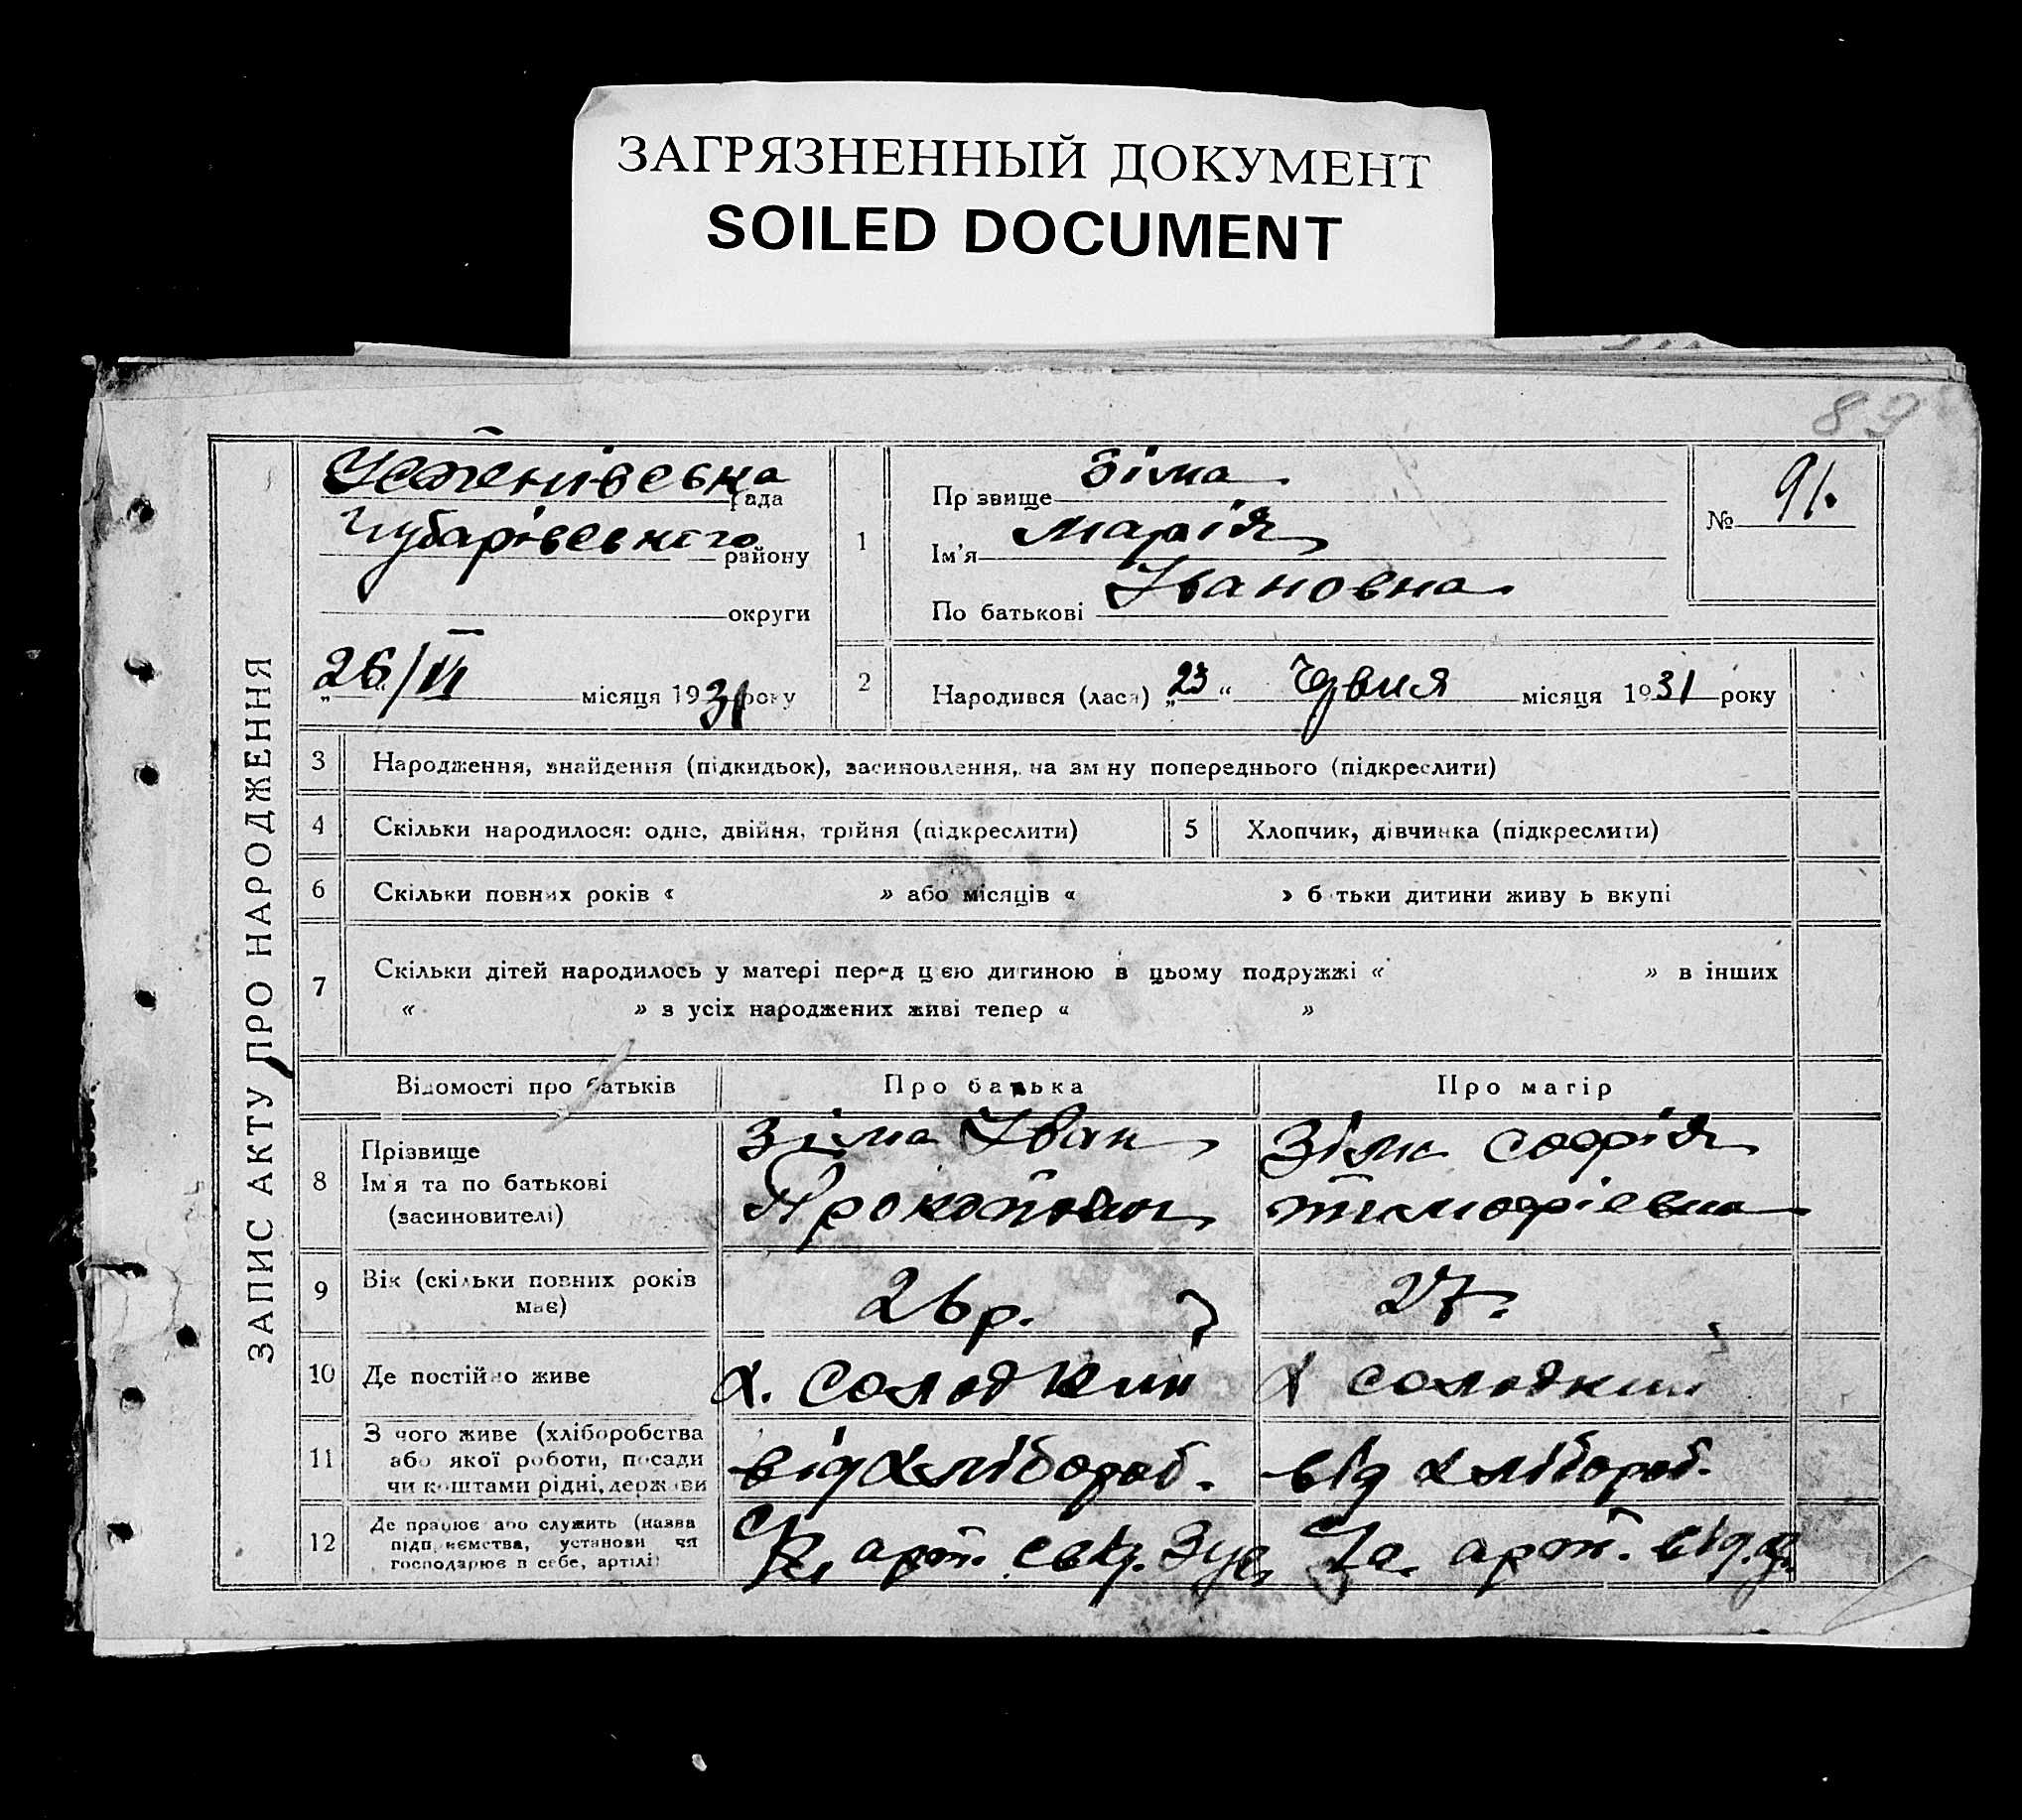 ЗАГРЯЗНЕННЫЙ ДОКУМЕНТ
SOILED DOCUMENT
89
ЗАПИС АКТУ ПРО НАРОДЖЕННЯ
рада
Чубарівського району
округи
26/VI місяця 1931 року
1
Прізвище Зіма
Ім'я Марія
По батькові Івановна
№ 91.
2
Народився (лася) „23“ Червня місяця 1931 року
3 Народження, знайдення (підкидьок), засиновлення, на зміну попереднього (підкреслити)
4 Скільки народилося: одне, двійня, трійня (підкреслити)
5 Хлопчик, дівчинка (підкреслити)
6 Скільки повних років « » або місяців « » батьки дитини живуть вкупі
7 Скільки дітей народилось у матері перед цією дитиною в цьому подружжі « » в інших
« » з усіх народжених живі тепер « »
Відомості про батьків
Про батька
Про матір
8 Прізвище
Ім'я та по батькові
(засиновителі)
Зіма Іван
Прокопович
Зіма Софія
Тимофіевна
9 Вік (скільки повних років
має)
26 р.
27.
10 Де постійно живе
х. Солодкий
х Солодкий
11 З чого живе (хліборобства
або якої роботи, посади
чи коштами рідні, держави
від хлібороб.
від хлібороб.
12 Де працює або служить (назва
підприємства, установи чи
господарює в себе, артілі)
арт.
арт.